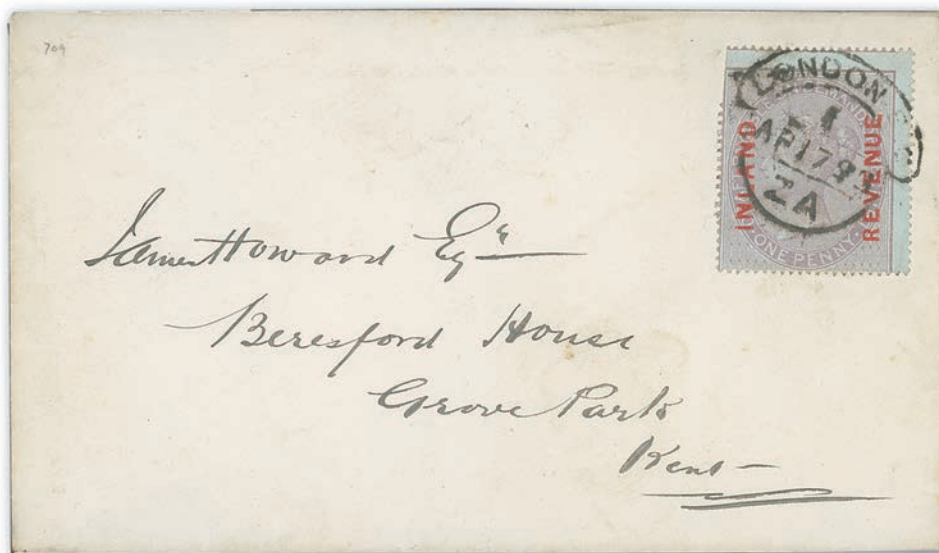 709
LONDON
AP 17 9
ZA
INLAND REVENUE
ONE PENNY
James Howard Esqr
Beresford House
Grove Park
Kent